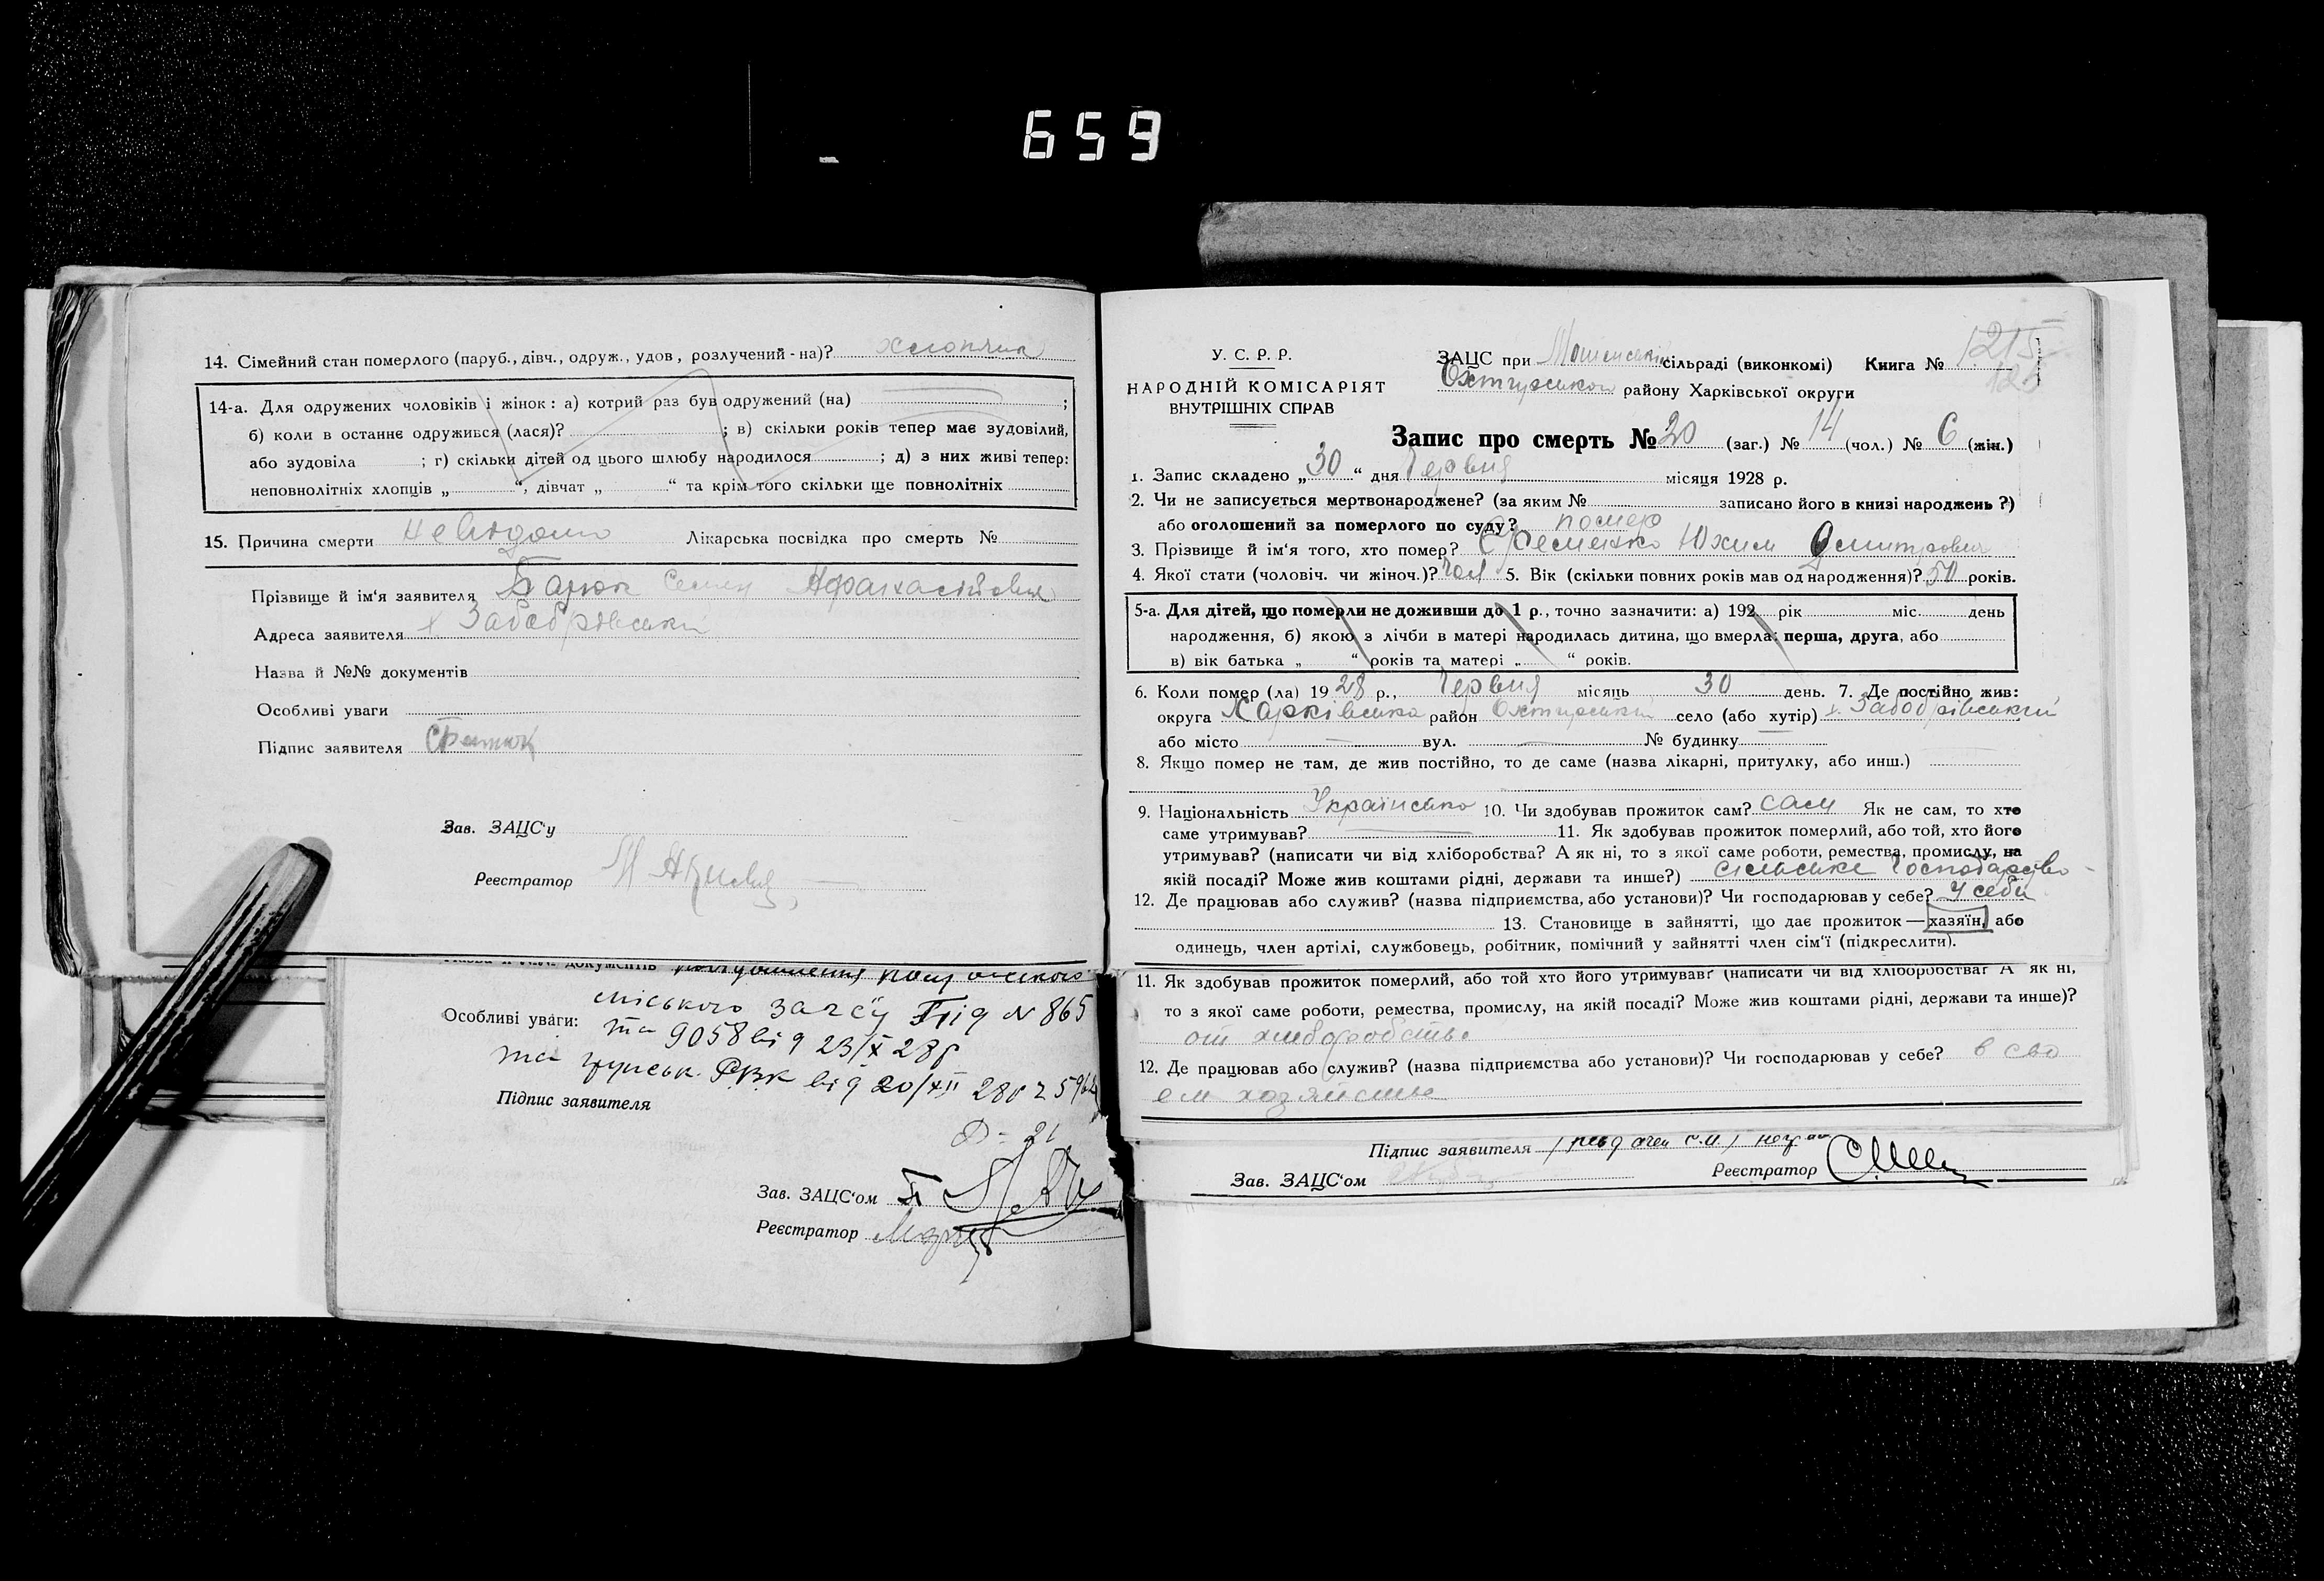 659
14. Сімейний стан померлого (паруб., дівч., одруж., удов, розлучений - на)? хлопчик
14-а. Для одружених чоловіків і жінок: а) котрий раз був одружений (на) ;
б) коли в останнє одружився (лася)? ; в) скільки років тепер має зудовілий,
або зудовіла ; г) скільки дітей од цього шлюбу народилося ; д) з них живі тепер:
неповнолітніх хлопців „ “, дівчат „ “ та крім того скільки ще повнолітніх
15. Причина смерти невідомо Лікарська посвідка про смерть №
Прізвище й ім'я заявителя Семен Афанасійович
Адреса заявителя х Забобрівський
Назва й №№ документів
Особливі уваги
Підпис заявителя
Зав. ЗАЦС'у
Реєстратор
документів
Особливі уваги: міського загсу під N 865
та 9058 від 23/X 28р
та РВК від 20/XII 28р
Підпис заявителя
Зав. ЗАЦС'ом
Реєстратор
У. С. Р. Р.
НАРОДНІЙ КОМІСАРІЯТ
ВНУТРІШНІХ СПРАВ
ЗАЦС при сільраді (виконкомі) Книга № 1215
125
Охтирського району Харківської округи
Запис про смерть № 20 (заг.) № 14 (чол.) № 6 (жін.)
1. Запис складено „30“ дня Червня місяця 1928 р.
2. Чи не записується мертвонароджене? (за яким № записано його в книзі народжень?)
або оголошений за померлого по суду? помер
3. Прізвище й ім'я того, хто помер? Єременко Юхим Дмитрович
4. Якої стати (чоловіч. чи жіноч.)? чол 5. Вік (скільки повних років мав од народження)? 50 років.
5-а. Для дітей, що померли не доживши до 1 р., точно зазначити: а) 192 рік міс. день
народження, б) якою з лічби в матері народилась дитина, що вмерла: перша, друга, або
в) вік батька „ “ років та матері „ “ років.
6. Коли помер (ла) 1928 р., Червня місяць 30 день. 7. Де постійно жив:
округа Харківська район Охтирський село (або хутір) х. Забобрівський
або місто вул. № будинку
8. Якщо помер не там, де жив постійно, то де саме (назва лікарні, притулку, або инш.)
9. Національність Українська 10. Чи здобував прожиток сам? сам Як не сам, то хто
саме утримував? 11. Як здобував прожиток померлий, або той, хто його
утримував? (написати чи від хліборобства? А як ні, то з якої саме роботи, ремества, промислу, на
якій посаді? Може жив коштами рідні, держави та инше?) сільське господарство
12. Де працював або служив? (назва підприємства, або установи)? Чи господарював у себе? у себе
13. Становище в зайнятті, що дає прожиток — хазяїн, або
одинець, член артілі, службовець, робітник, помічний у зайнятті член сім'ї (підкреслити).
11. Як здобував прожиток померлий, або той хто його утримував? (написати чи від хліборобства? А як ні,
то з якої саме роботи, ремества, промислу, на якій посаді? Може жив коштами рідні, держави та инше)?
от хлиборобства
12. Де працював або служив? (назва підприємства або установи)? Чи господарював у себе? в сво
ем хазяйстве
Підпис заявителя
Зав. ЗАЦС'ом Реєстратор